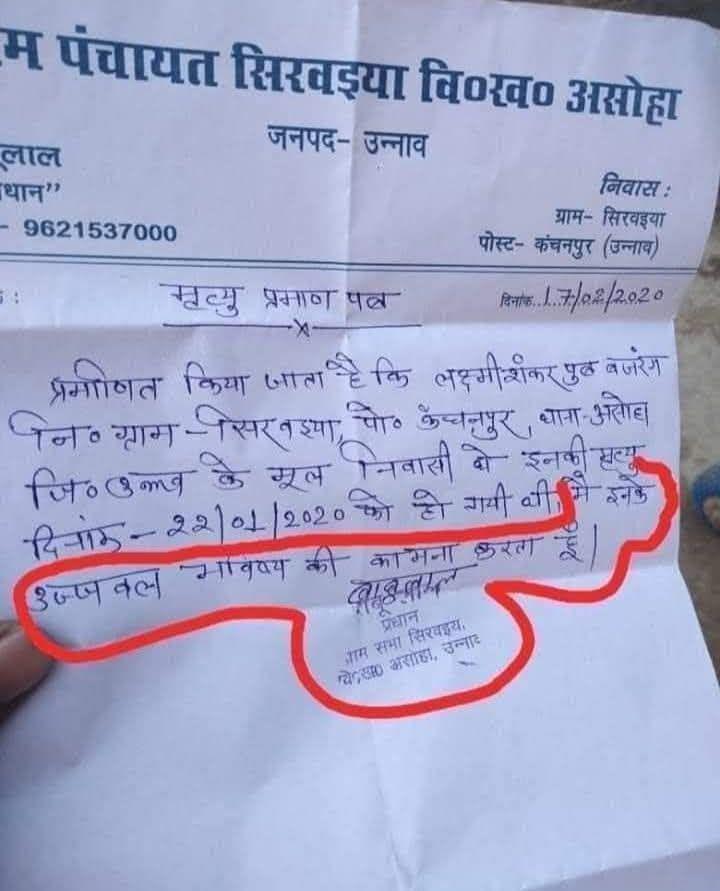 म पंचायत सिरवइया वि०ख० असोहा
जनपद- उन्नाव
ूलाल
धान”
- 9621537000
निवास :
ग्राम- सिरवइया
पोस्ट- कंचनपुर (उन्नाव)
:
मृत्यु प्रमाण पत्र
दिनांक..17/02/2020
प्रमाणित किया जाता है कि लक्ष्मीशंकर पुत्र बजरंग
नि० ग्राम - सिरवइया, पो० कंचनपुर, थाना-असोहा
जि० उन्नाव के मूल निवासी थे इनकी मृत्यु
दिनांक - 22/01/2020 को हो गयी थी, मैं इनके
उज्जवल भविष्य की कामना करता हूँ।
बाबूलाल
प्रधान
ग्राम सभा सिरवइया,
वि.ख० असोहा, उन्नाव